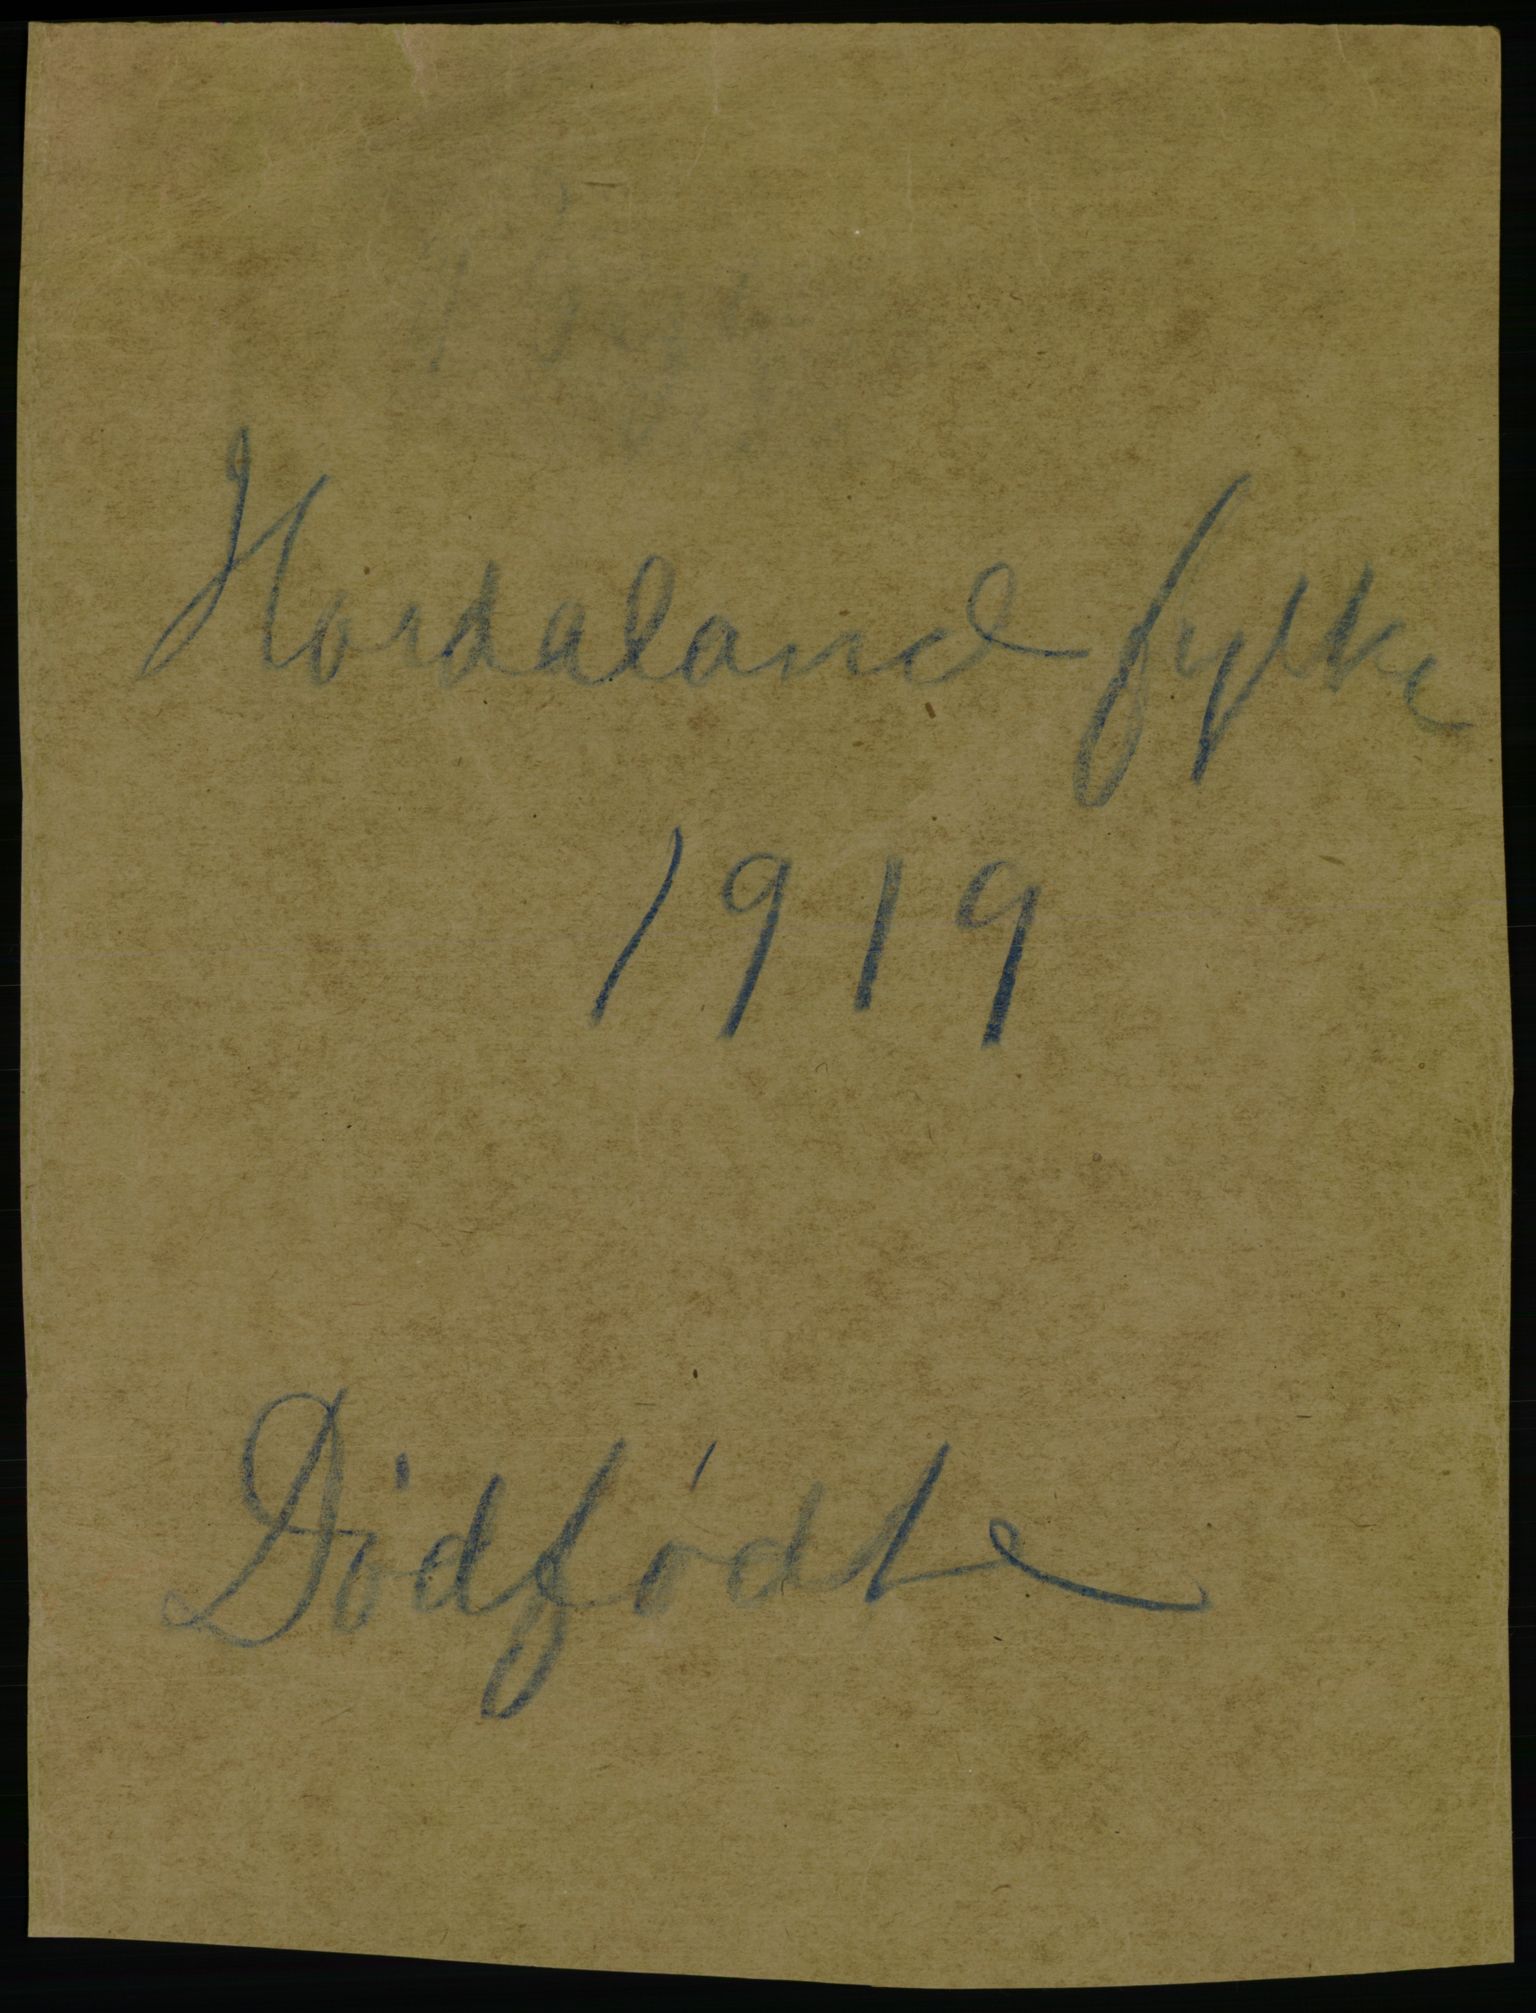 Hordaland fylke
1919
Dødfødte